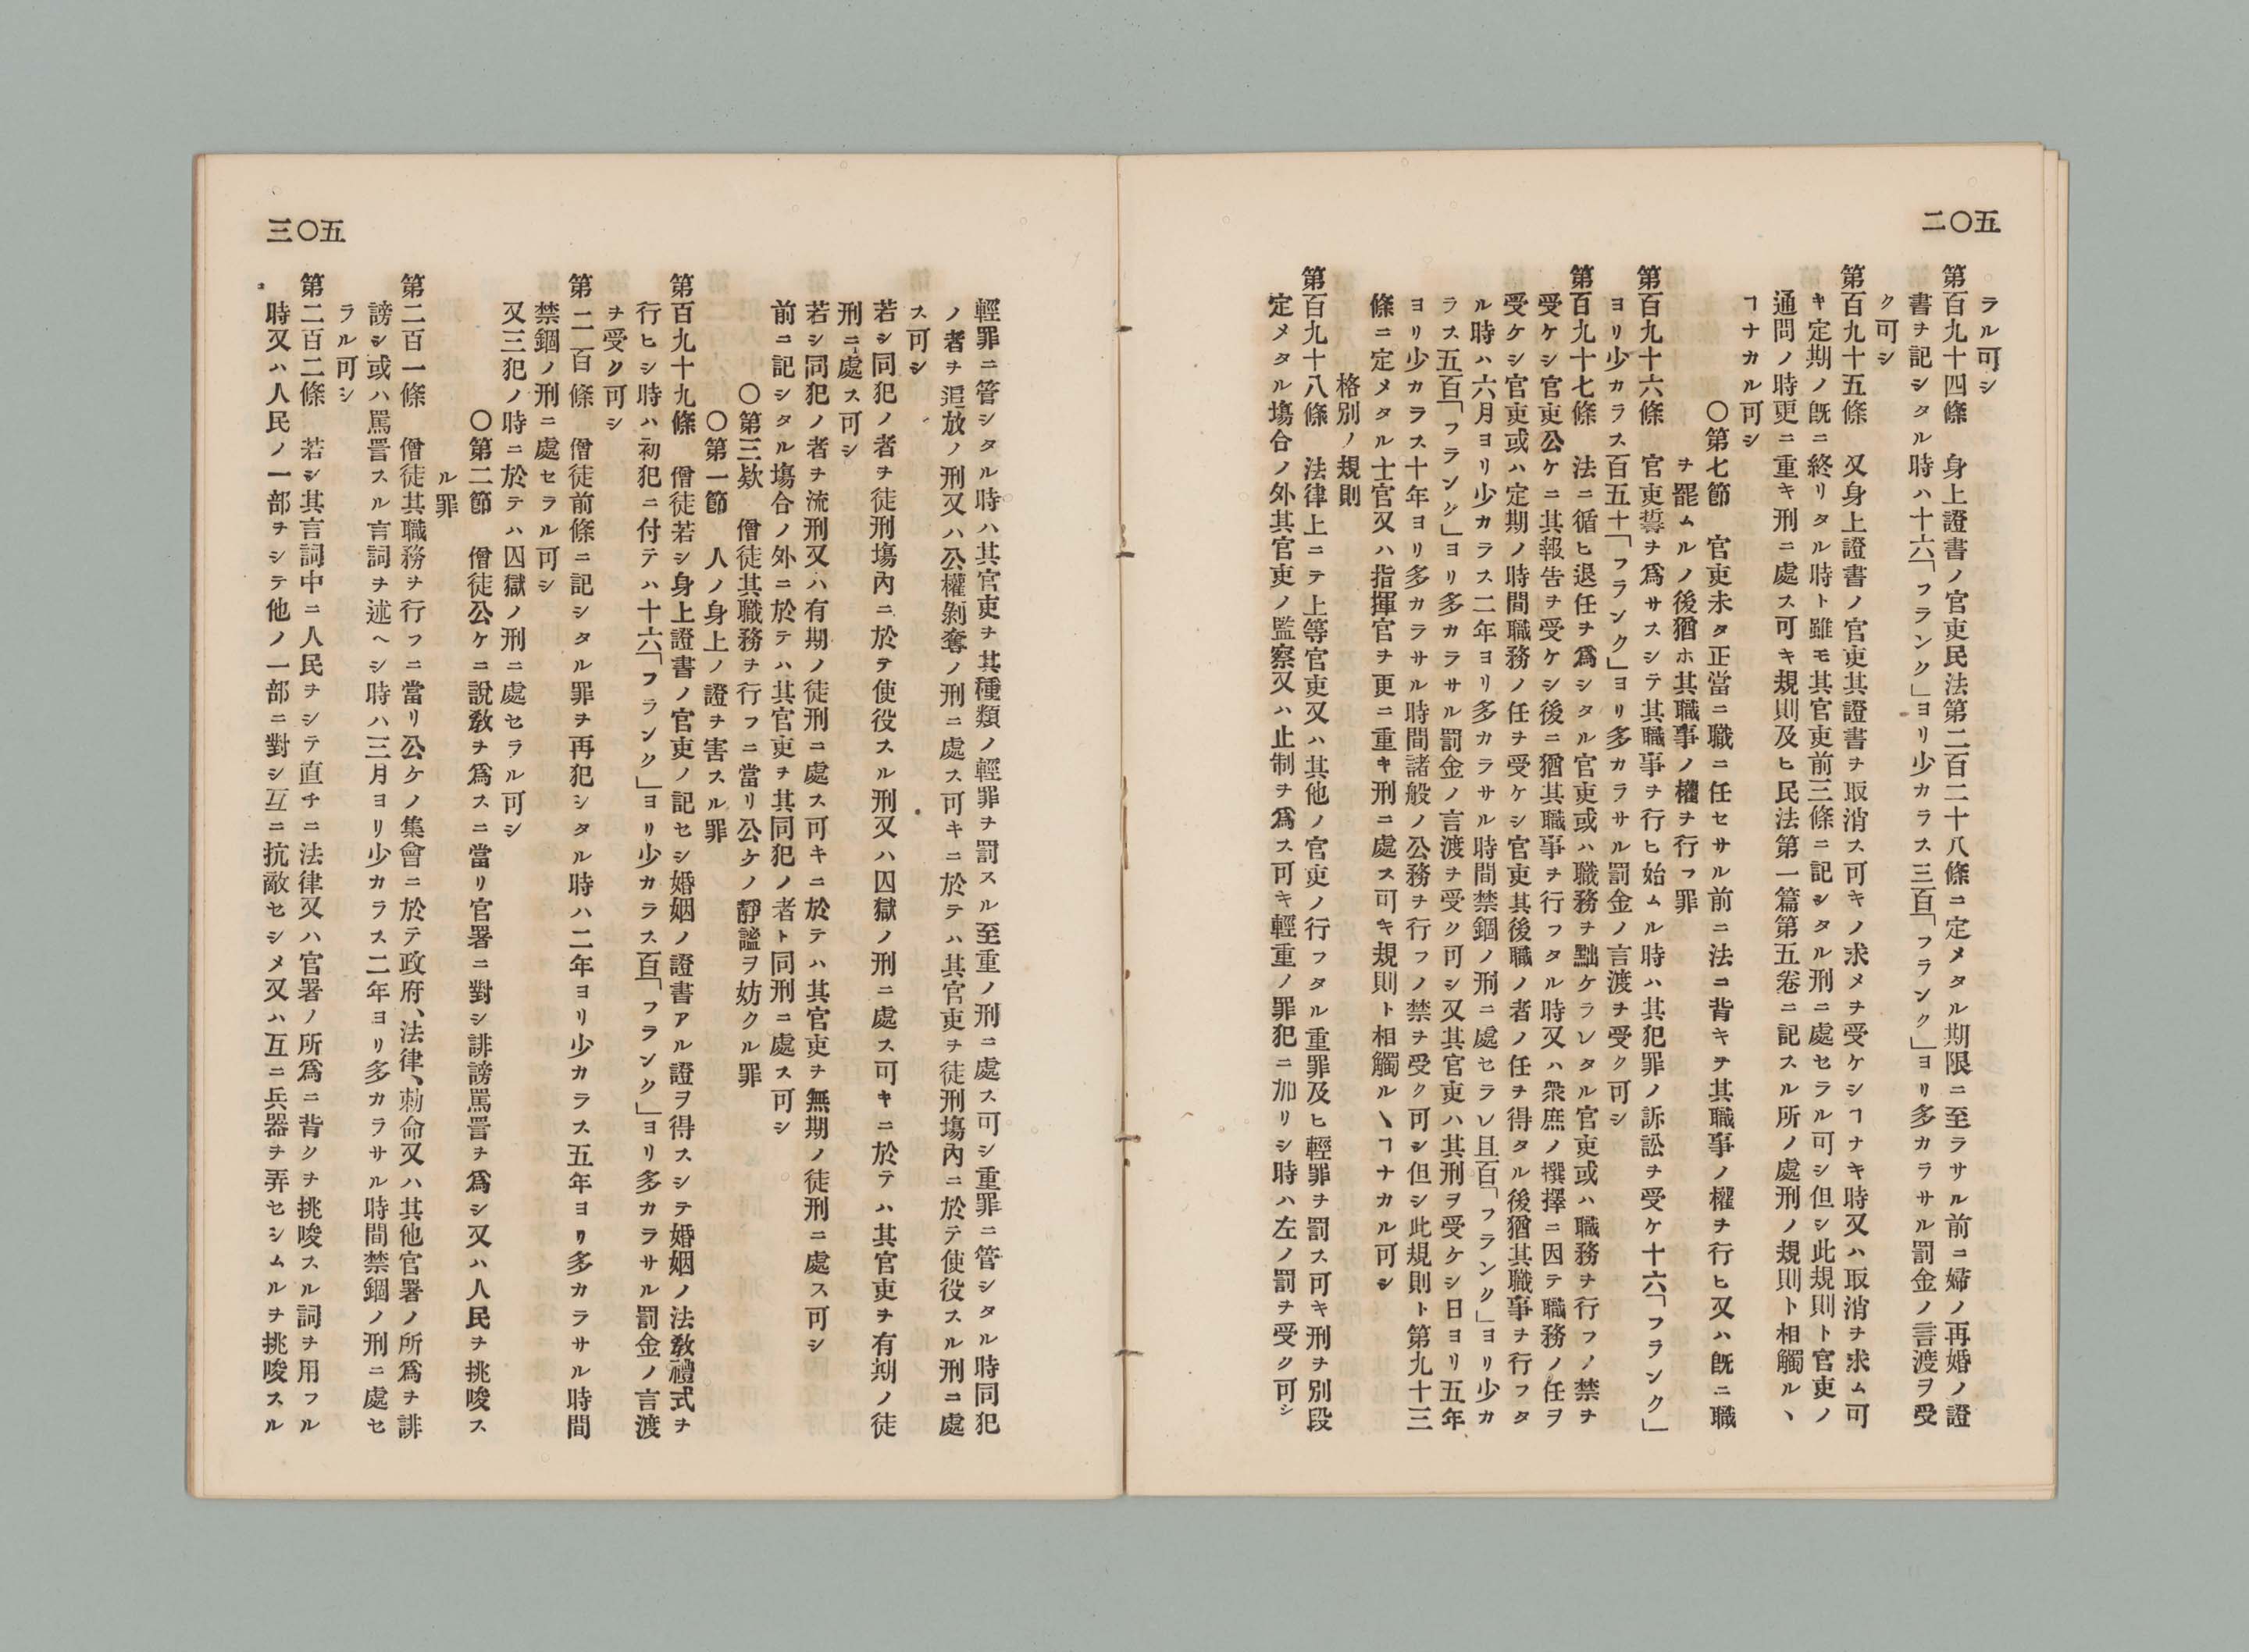 二〇五
ラル可シ
第百九十四條　身上證書ノ官吏民法第二百二十八條ニ定メタル期限ニ至ラサル前ニ婦ノ再婚ノ證
書ヲ記シタル時ハ十六「フランク」ヨリ少カラス三百「フランク」ヨリ多カラサル罰金ノ言渡ヲ受
ク可シ
第百九十五條　又身上證書ノ官吏其證書ヲ取消ス可キノ求メヲ受ケシヿナキ時又ハ取消ヲ求ム可
キ定期ノ既ニ終リタル時ト雖モ其官吏前三條ニ記シタル刑ニ處セラル可シ但シ此規則ト官吏ノ
通問ノ時更ニ重キ刑ニ處ス可キ規則及ヒ民法第一篇第五卷ニ記スル所ノ處刑ノ規則ト相觸ルヽ
ヿナカル可シ
〇第七節　官吏未タ正當ニ職ニ任セサル前ニ法ニ背キテ其職事ノ權ヲ行ヒ又ハ既ニ職
ヲ罷ムルノ後猶ホ其職事ノ權ヲ行フ罪
第百九十六條　官吏誓ヲ爲サスシテ其職事ヲ行ヒ始ムル時ハ其犯罪ノ訴訟ヲ受ケ十六「フランク」
ヨリ少カラス百五十「フランク」ヨリ多カラサル罰金ノ言渡ヲ受ク可シ
第百九十七條　法ニ循ヒ退任ヲ爲シタル官吏或ハ職務ヲ黜ケラレタル官吏或ハ職務ヲ行フノ禁ヲ
受ケシ官吏公ケニ其報告ヲ受ケシ後ニ猶其職事ヲ行フタル時又ハ衆庶ノ撰擇ニ因テ職務ノ任ヲ
受ケシ官吏或ハ定期ノ時間職務ノ任ヲ受ケシ官吏其後職ノ者ノ任ヲ得タル後猶其職事ヲ行フタ
ル時ハ六月ヨリ少カラス二年ヨリ多カラサル時間禁錮ノ刑ニ處セラレ且百「フランク」ヨリ少カ
ラス五百「フランク」ヨリ多カラサル罰金ノ言渡ヲ受ク可シ又其官吏ハ其刑ヲ受ケシ日ヨリ五年
ヨリ少カラス十年ヨリ多カラサル時間諸般ノ公務ヲ行フノ禁ヲ受ク可シ但シ此規則ト第九十三
條ニ定メタル士官又ハ指揮官ヲ更ニ重キ刑ニ處ス可キ規則ト相觸ルヽヿナカル可シ
格別ノ規則
第百九十八條　法律上ニテ上等官吏又ハ其他ノ官吏ノ行フタル重罪及ヒ輕罪ヲ罰ス可キ刑ヲ別段
定メタル塲合ノ外其官吏ノ監察又ハ止制ヲ爲ス可キ輕重ノ罪犯ニ加リシ時ハ左ノ罰ヲ受ク可シ
三〇五
輕罪ニ管シタル時ハ其官吏ヲ其種類ノ輕罪ヲ罰スル至重ノ刑ニ處ス可シ重罪ニ管シタル時同犯
ノ者ヲ追放ノ刑又ハ公權剝奪ノ刑ニ處ス可キニ於テハ其官吏ヲ徒刑塲内ニ於テ使役スル刑ニ處
ス可シ
若シ同犯ノ者ヲ徒刑塲內ニ於テ使役スル刑又ハ囚獄ノ刑ニ處ス可キニ於テハ其官吏ヲ有期ノ徒
刑ニ處ス可シ
若シ同犯ノ者ヲ流刑又ハ有期ノ徒刑ニ處ス可キニ於テハ其官吏ヲ無期ノ徒刑ニ處ス可シ
前ニ記シタル塲合ノ外ニ於テハ其官吏ヲ其同犯ノ者ト同刑ニ處ス可シ
〇第三欵　僧徒其職務ヲ行フニ當リ公ケノ靜謐ヲ妨クル罪
〇第一節　人ノ身上ノ證ヲ害スル罪
第百九十九條　僧徒若シ身上證書ノ官吏ノ記セシ婚姻ノ證書アル證ヲ得スシテ婚姻ノ法敎禮式ヲ
行ヒシ時ハ初犯ニ付テハ十六「フランク」ヨリ少カラス百「フランク」ヨリ多カラサル罰金ノ言渡
ヲ受ク可シ
第二百條　僧徒前條ニ記シタル罪ヲ再犯シタル時ハ二年ヨリ少カラス五年ヨリ多カラサル時間
禁錮ノ刑ニ處セラル可シ
又三犯ノ時ニ於テハ囚獄ノ刑ニ處セラル可シ
〇第二節　僧徒公ケニ說敎ヲ爲スニ當リ官署ニ對シ誹謗罵詈ヲ爲シ又ハ人民ヲ挑唆ス
ル罪
第二百一條　僧徒其職務ヲ行フニ當リ公ケノ集會ニ於テ政府、法律、勅命又ハ其他官署ノ所爲ヲ誹
謗シ或ハ罵詈スル言詞ヲ述ヘシ時ハ三月ヨリ少カラス二年ヨリ多カラサル時間禁錮ノ刑ニ處セ
ラル可シ
第二百二條　若シ其言詞中ニ人民ヲシテ直チニ法律又ハ官署ノ所爲ニ背クヲ挑唆スル詞ヲ用フル
時又ハ人民ノ一部ヲシテ他ノ一部ニ對シ互ニ抗敵セシメ又ハ互ニ兵器ヲ弄セシムルヲ挑唆スル